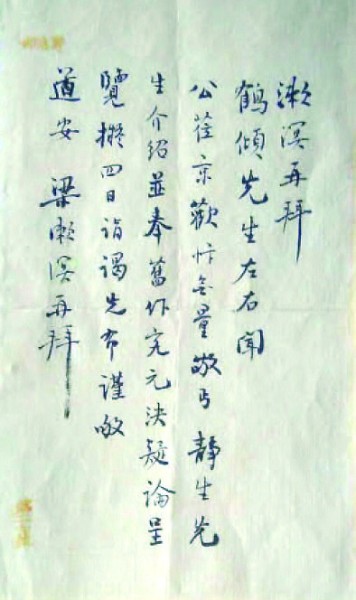 漱溟再拜
鶴傾先生左右聞
公莅京歡忭无量敬丐靜生先
生介紹並奉舊作究元決疑論呈
覽擬四日詣謁先布謹敬
道安 梁漱溟再拜